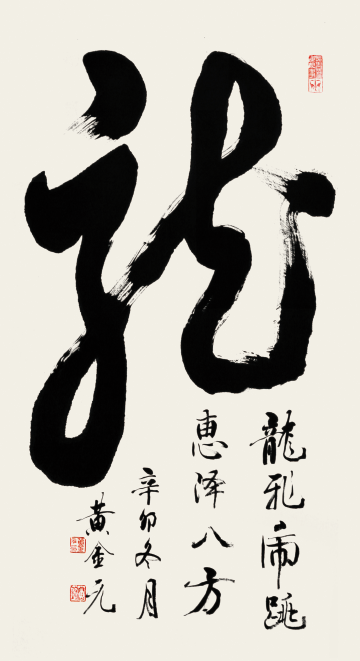 龍
龍飛虎跳
惠泽八方
辛卯冬月
黄金元